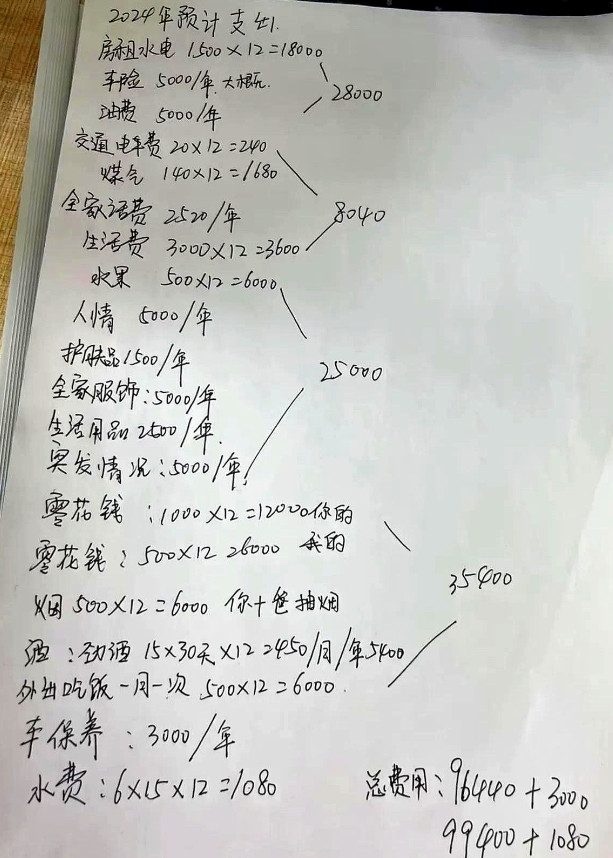 2024年预计支出.
房租水电 1500×12=18000
车险 5000/年.大概.
油费 5000/年
28000
交通 电车费 20×12=240
煤气 140×12=1680
全家话费 2520/年
生活费 3000×12=3600
8040
水果 500×12=6000
人情 5000/年
护肤品1500/年
全家服饰:5000/年
生活用品 2500/年.
突发情况:5000/年.
25000
零花钱:1000×12=12000你的
零花钱:500×12=6000 我的
烟 500×12=6000 你+爸抽烟
酒:劲酒 15×30天×12=450/月/年5400
外出吃饭一月一次 500×12=6000.
35400
车保养:3000/年
水费:6×15×12=1080
总费用:96440+3000
99400+1080